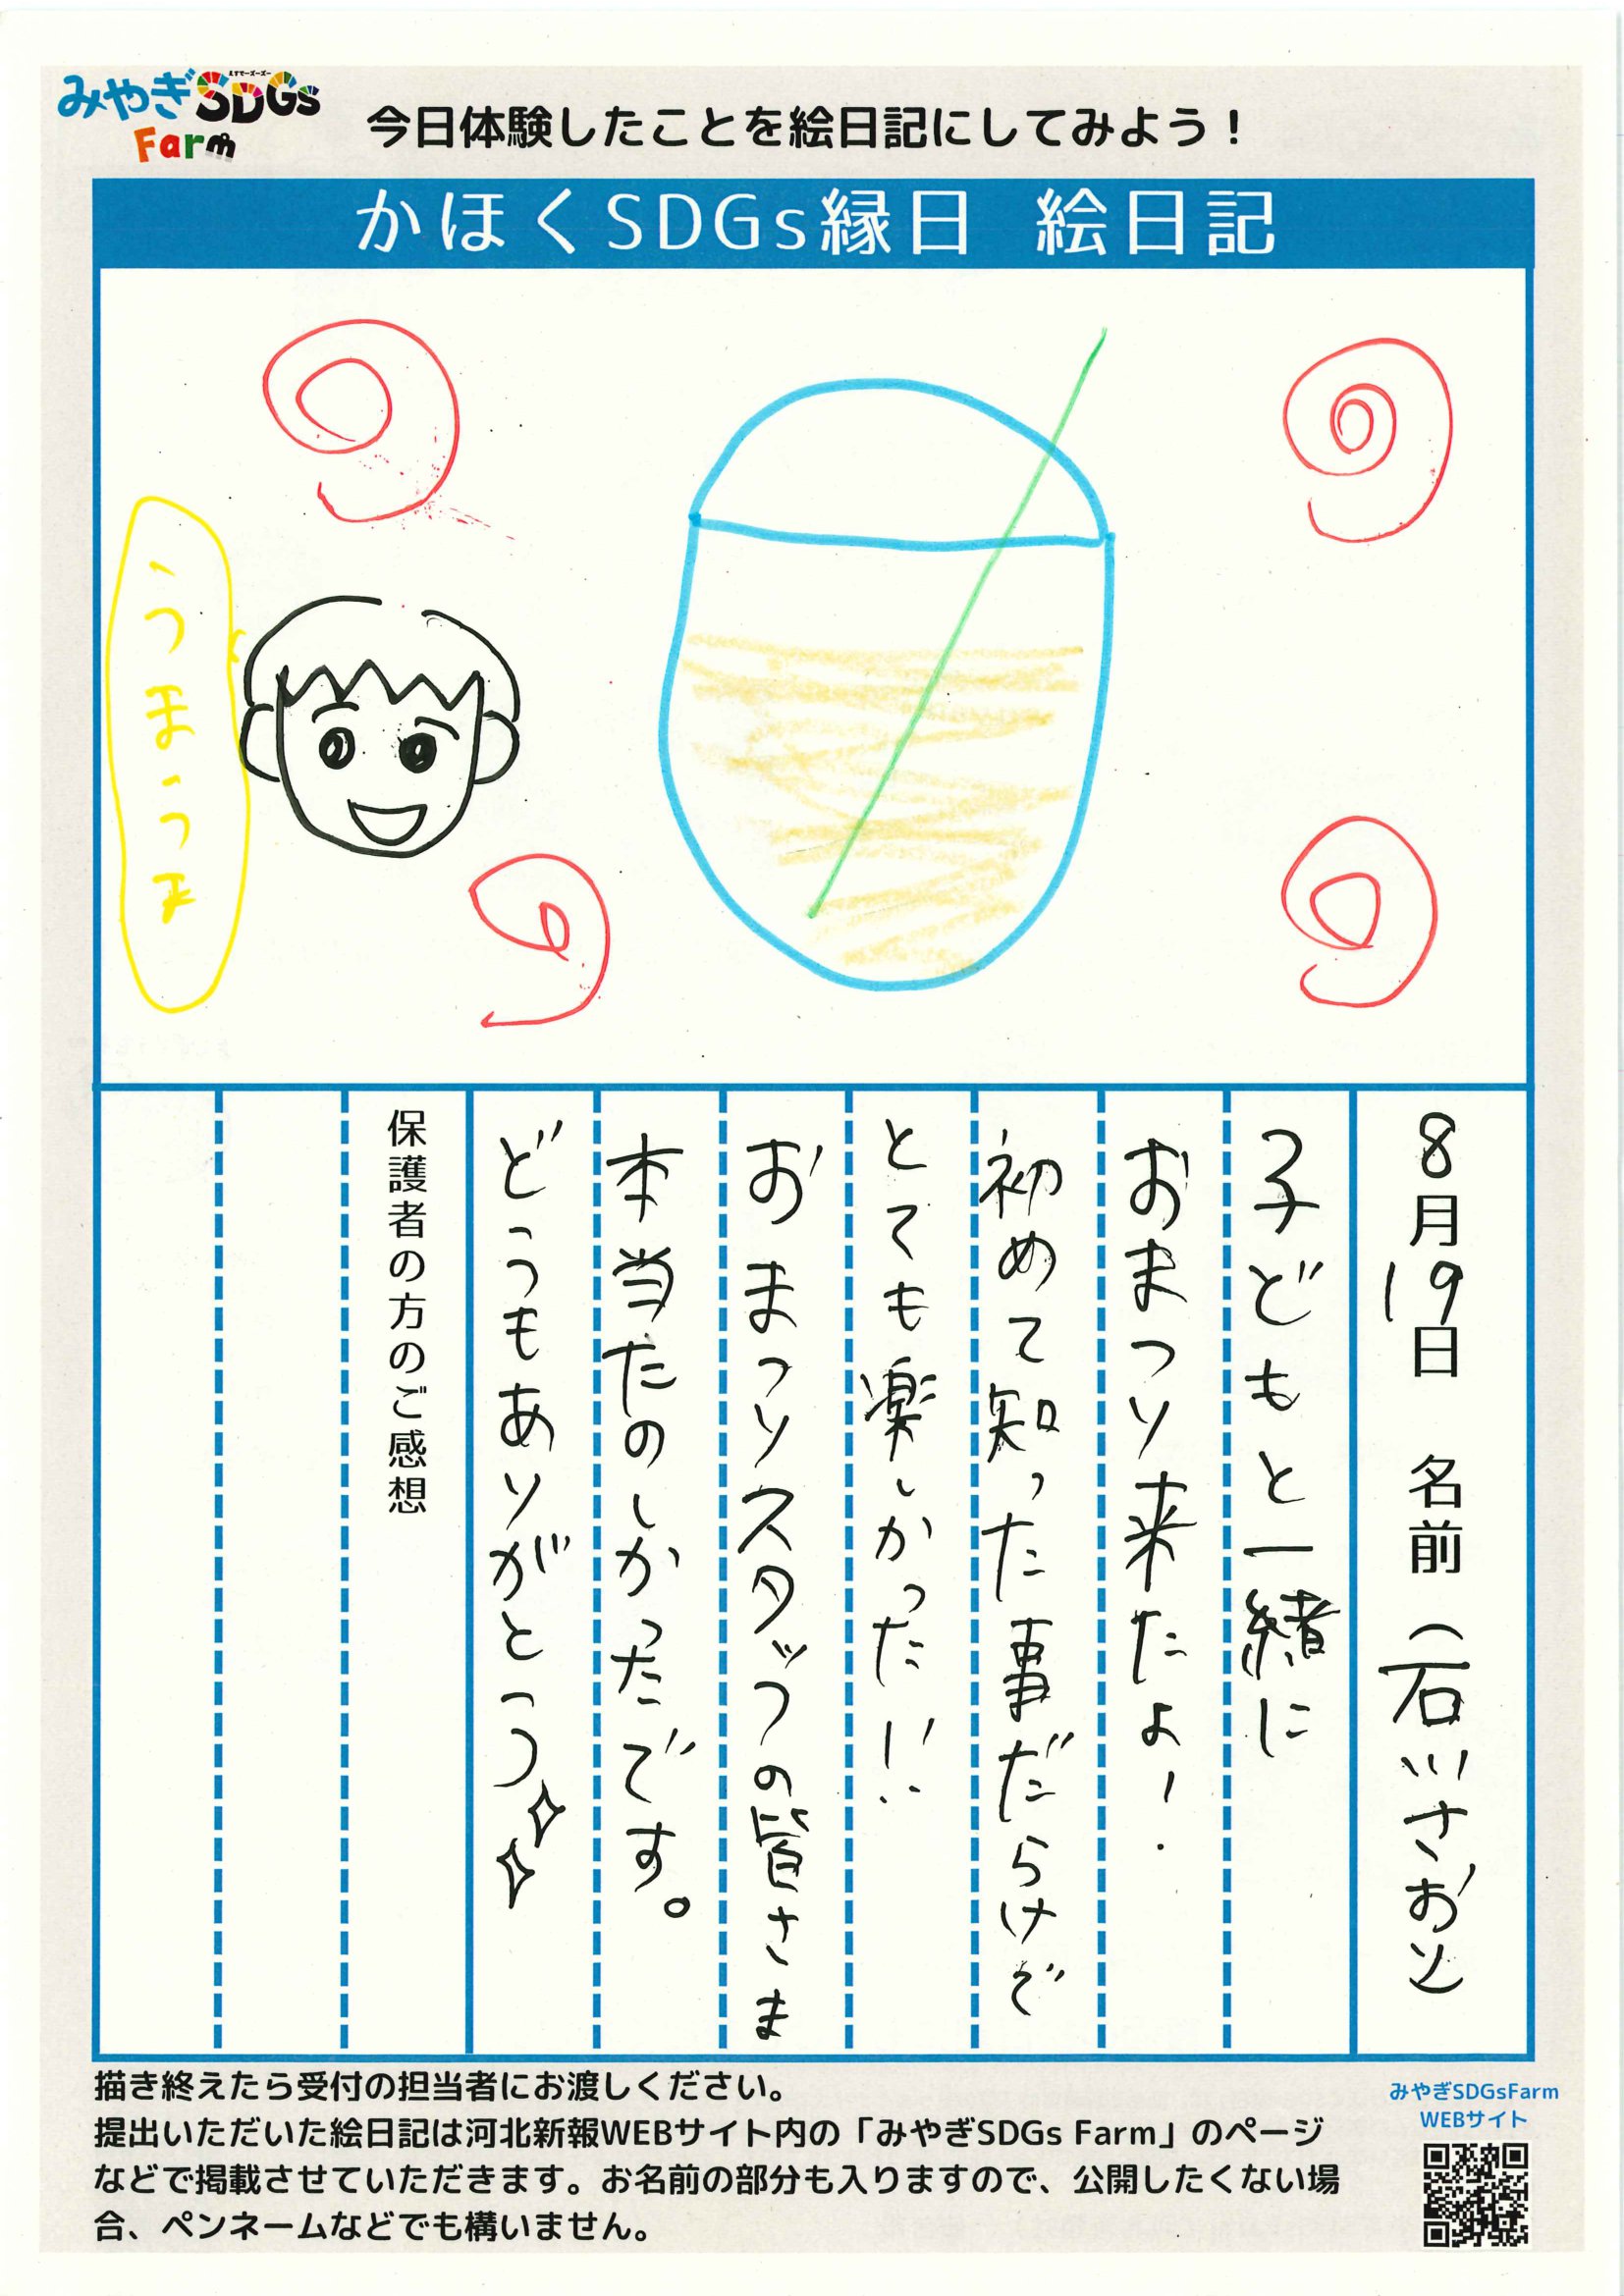 みやぎSDGs
エスディージーズ
Farm
今日体験したことを絵日記にしてみよう！
かほくSDGs縁日 絵日記
うまうま
8月19日 名前（石川さおり）
子どもと一緒に
おまつり来たよ！
初めて知った事だらけで
とても楽しかった!!
おまつりスタッフの皆さま
本当たのしかったです。
どうもありがとう
保護者の方のご感想
描き終えたら受付の担当者にお渡しください。
提出いただいた絵日記は河北新報WEBサイト内の「みやぎSDGs Farm」のページ
などで掲載させていただきます。お名前の部分も入りますので、公開したくない場
合、ペンネームなどでも構いません。
みやぎSDGsFarm
WEBサイト